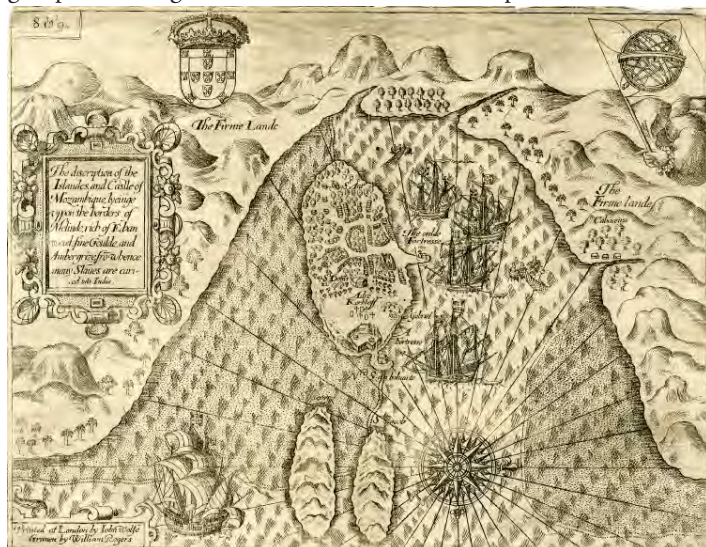 The Firme Lande
The discription of the
Islandes and Castle of
Mozambique, lyeinge
vpon the borders of
Melinde, rich of Eban
wood, fine Goulde, and
Ambergrize, frō whence
many Slaues are cari-
ed into India.
The
Firme lande
The oulde
fortresse
fortresse
Printed at London by Iohn Wolfe
Grauen by William Rogers